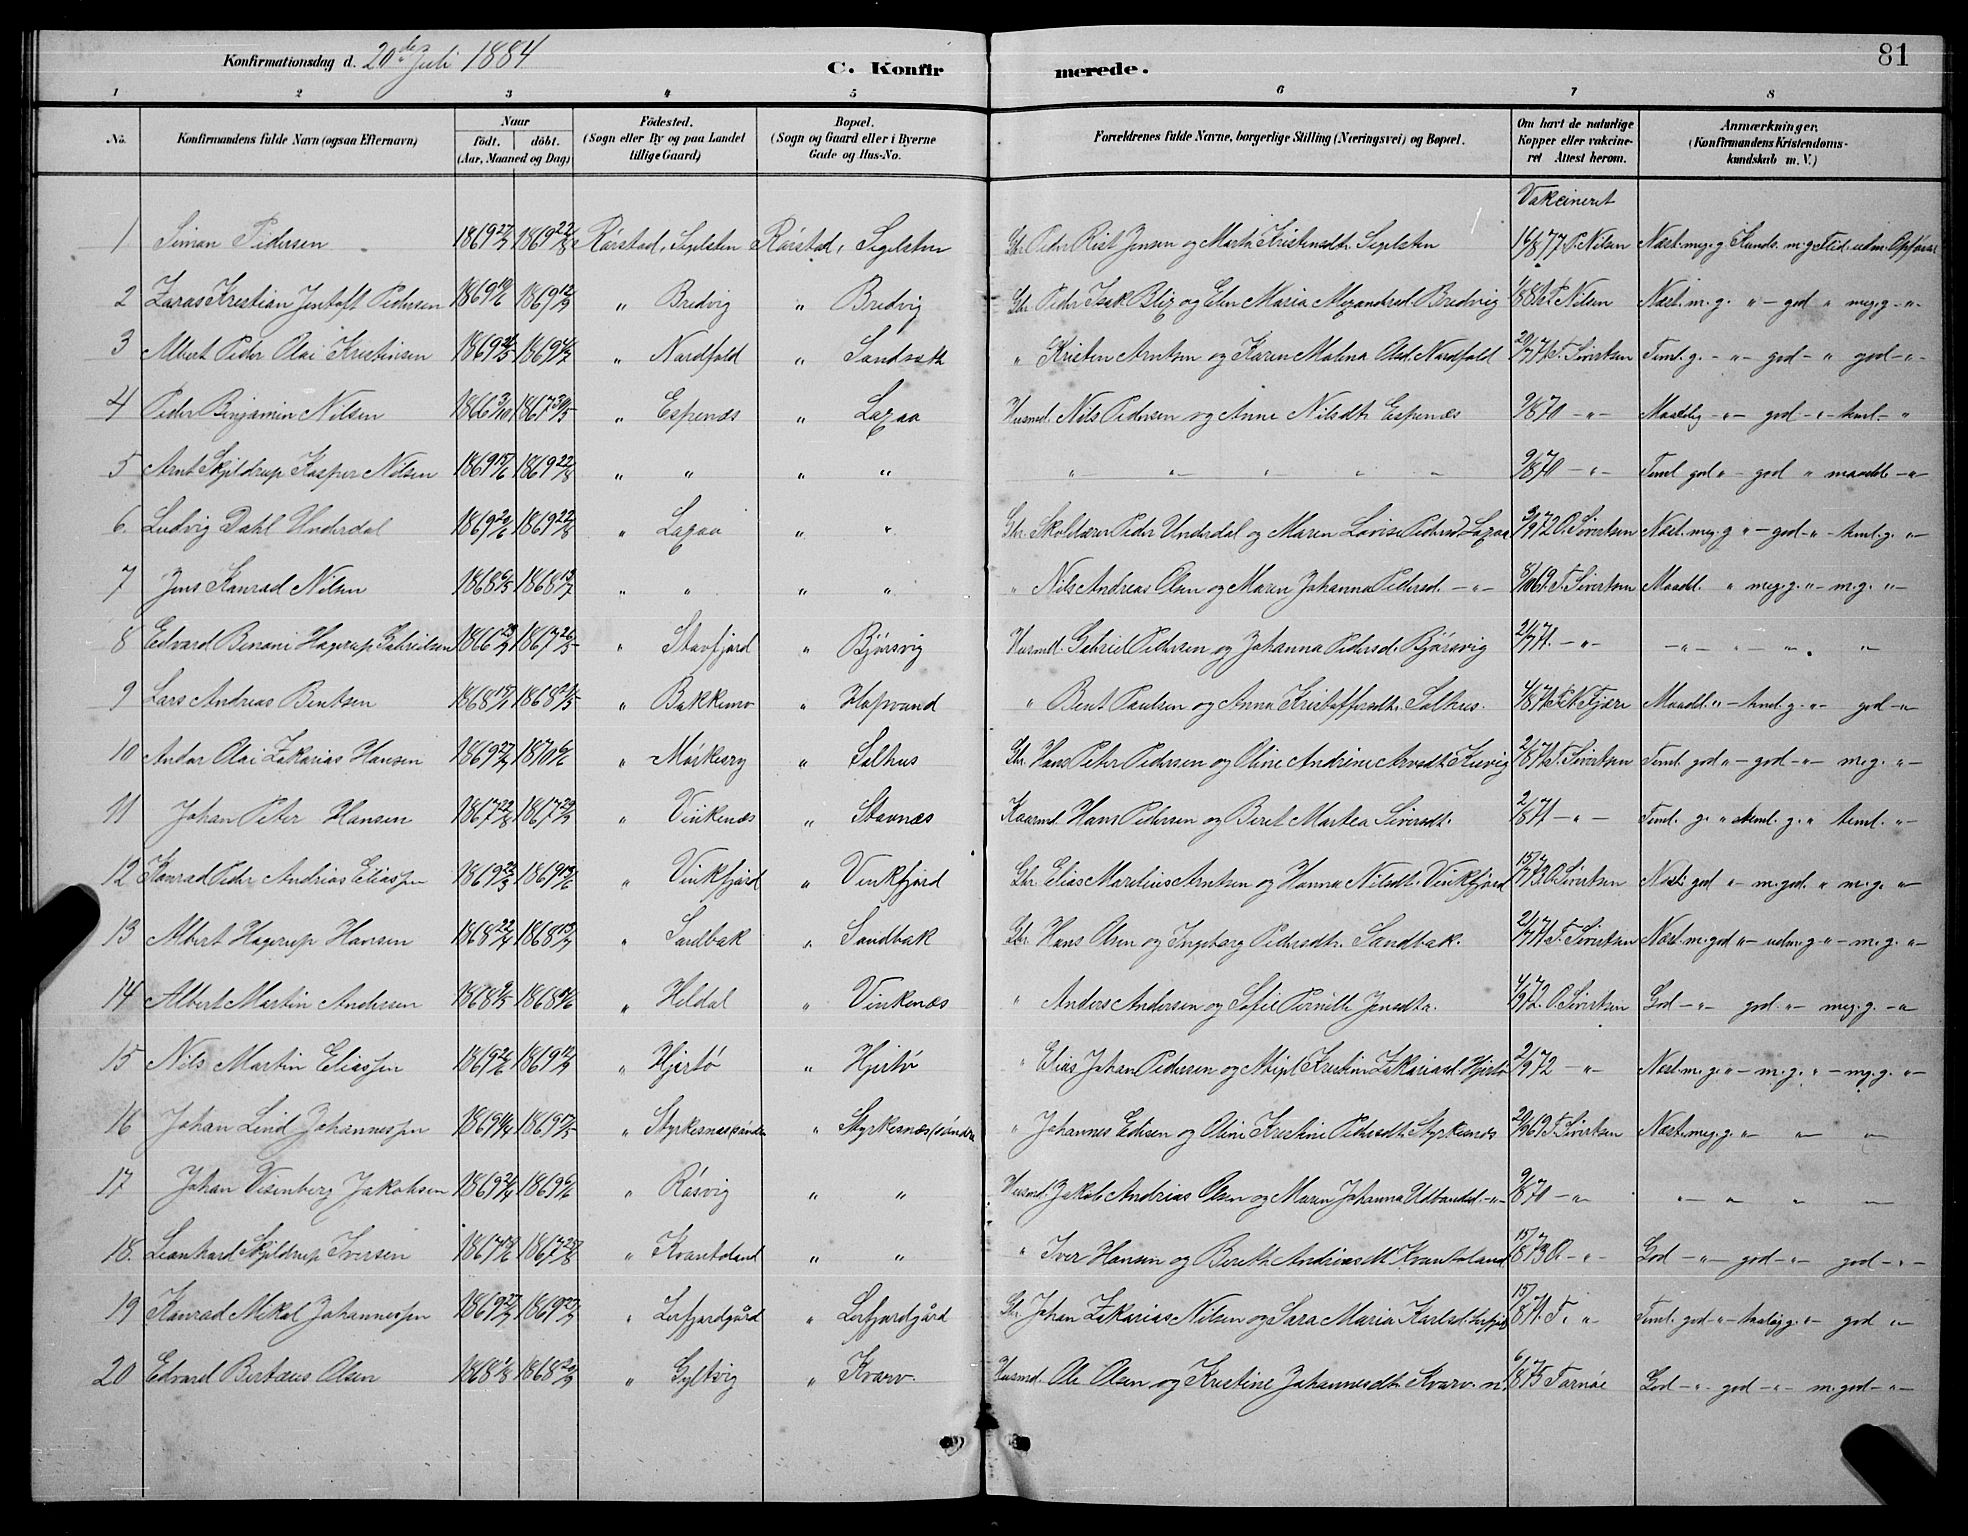 Konfirmationsdag d. 20de Juli 1884
C. Konfirmerede.
81
1 2 3 4 5 6 7 8
No.
Konfirmandens fulde Navn (ogsaa Efternavn)
Naar
födt. döbt.
(Aar, Maaned og Dag)
Födested.
(Sogn eller By og paa Landet
tillige Gaard)
Bopæl.
(Sogn og Gaard eller i Byerne
Gade og Hus-No.
Forældrenes fulde Navne, borgerlige Stilling (Næringsvei) og Bopæl.
Om havt de naturlige
Kopper eller vakcine-
ret Attest herom.
Anmærkninger.
(Konfirmandens Kristendoms-
kundskab m. V.)
Vakcineret
1 Simon Pedersen 1869 1869 22/8 Rörstad, Sigelsten Rörstad, Sigelsten Gbr. Peder Rist Jensen og Marth. Kristensdt. Sigelsten 16/8 77 P. Nilsen Næst. meg. g. Kunds. m. g. Flid. udm. Opförsel
2 Zaras Kristian Jentoft Pedersen 1869 1869 12/9 " Bredvig " Bredvig Gbr. Peder Isak Blix og Elen Maria Bredvig P. Nilsen Næst. m. g. " – god " meg. g. – " –
3 Albert Peder Olai Kristensen 1869 1869 " Nordfold " " Kristen Arntsen og Karen Malena Olsd. Nordfold T. Sivertsen Teml. g. – " – god – " god – " –
4 Peder Benjamin Nilsen 1866 3/10 1867 30/5 " Espenæs " Laxaa Husmd. Nils Pedersen og Anne Nilsdtr. Espenæs 9/8 70 – " – Maadelig – " – god – " – teml – "
5 Arnt Skjeldrup Kasper Nilsen 1869 15/6 1869 22/8 " " " " " " " " " 9/8 70 – " – Teml. god " – god " maadel. – " –
6. Ludvig Dahl Underdal 1869 20/6 1869 22/8 " Laxaa " " Gbr. Skolelærer Peder Underdal og Maren Lovise Pedersd. Laxaa O. Sivertsen Næst. meg. g " – god – " – teml. g. " –
7 Jens Konrad Nilsen 1868 6/5 1868 " " " " " Nils Andreas Olsen og Maren Johanna Pedersd. – " – T. Sivertsen Maadel. " meg. g. " – m. g. " –
8 Edvard Benoni Hagerup Gabrielsen 1866 1867 26/5 " Stavfjord " Bjørsvig Husmd. Gabriel Pedersen og Johanna Pedersd. Bjørsvig – " – – " – " – " "
9 Lars Andreas Bentsen 1868 1868 " Bakkemo " Hopvand " Bent Paulsen og Anna Kristoffersdt. Salhus. Fjære Maadel. " – teml. g. " – god – " –
10 Andor Olai Zakarias Hansen 1869 1870 6/6 " Mörkesry " Salhus Gbr. Hans Peter Pedersen og Oline Andrine T. Sivertsen Teml. god " – god – " – m. g. " –
11 Johan Peter Hansen 1867 22/8 1867 29/9 " Vinkenæs " Stavnæs Kaarmd. Hans Pedersen og Beret Martea Siversdt. – " – Teml. g. " teml. g. " teml. " –
12 Konrad Peder Andreas Eliassen 1869 23/3 1869 13/6 " Vinkfjord " Vinkfjord Gbr. Elias Marelius Arntsen og Hanna Nilsdt. Vinkfjord O. Sivertsen Næst. god " – m. god. " m. g. " –
13 Albert Hagerup Hansen 1868 22/4 1868 " Sandbak " Sandbak Gbr. Hans Olsen og Ingeborg Pedersdt. Sandbak. T. Sivertsen Næst. m. god " – udm. g " – m. g. " –
14 Albert Martin Andersen 1868 1868 " Heldal " Vinkenæs " Anders Andersen og Sofie Pernille Jensdtr. O. Sivertsen God – " – god. – " – meg. g. – "
15 Nils Martin Eliassen 1869 1869 12/9 " Hjertø " Hjertø " Elias Johan Pedersen og Kristine Zakariasd. Hjertø – " – Næst. m. g. " – m. g. " – mg. g. " –
16 Johan Lind Johannessen 1869 1869 17/5 " " " Johannes Edisen og Oline Kristine Pedersdt. Styrkesnæs T. Sivertsen Næst. meg. g. " " "
17 Johan Visenberg Jakobsen 1869 1869 6/6 " Rösvig " " Husmd. Jakob Andreas Olsen og Maren Johanna – " – 9/8 70 – " – " " " –
18. Leonhard Skjeldrup Iversen 1867 1867 25/8 " Kvantoland " " " Iver Hansen og Bereth. Andreasdt. Kvantoland 15/7 O. – " – God – " – god – " – god – " –
19 Konrad Mikal Johannessen 1869 1869 27/9 " Leifjordgård " Leifjordgård Gbr. Johan Zakarias Nilsen og Sara Maria Karlsd. T. " Teml. god – " – god " –
20 Edvard Bertæus Olsen 1868 1/8 1868 20/9 " Gyltvig " Kvarv. Husmd. Ole Olsen og Kristine Johannesdt. Kvarv. 6/8 75 Tarnöe God – " – god – " – m. god – " –